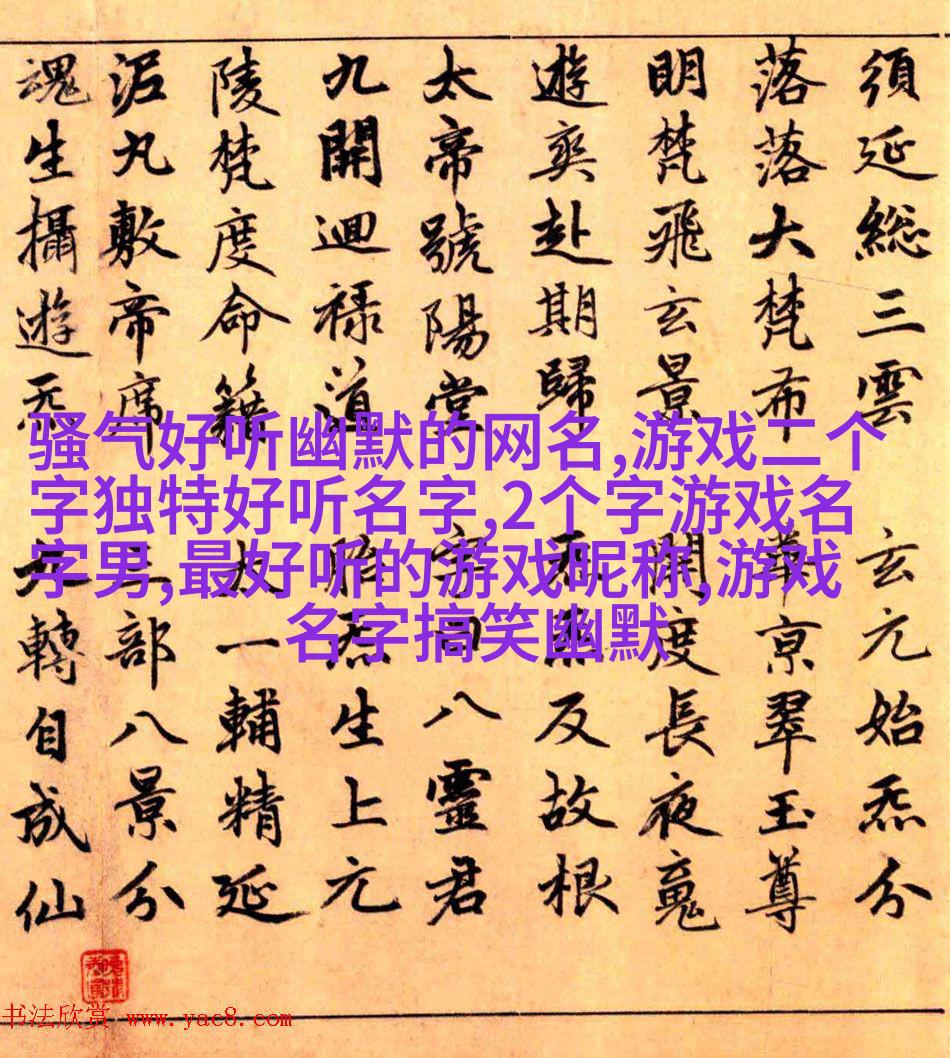 須延総三雲 玄元始炁分
落落大梵布 京翠玉尊
明梵飛玄景 開度長夜䰟
遊爽赴期歸 反故根
太帝號陽堂 字曰八靈君
九開迴祿道 炁生上元
陵梵度命籍 太一輔精延
泥丸敷帝席 部八景分
魂生攝遊炁 轉自成仙
骚气好听幽默的网名,游戏二个
字独特好听名字,2个字游戏名
字男,最好听的游戏昵称,游戏
名字搞笑幽默
书法欣赏 www.yac8.com